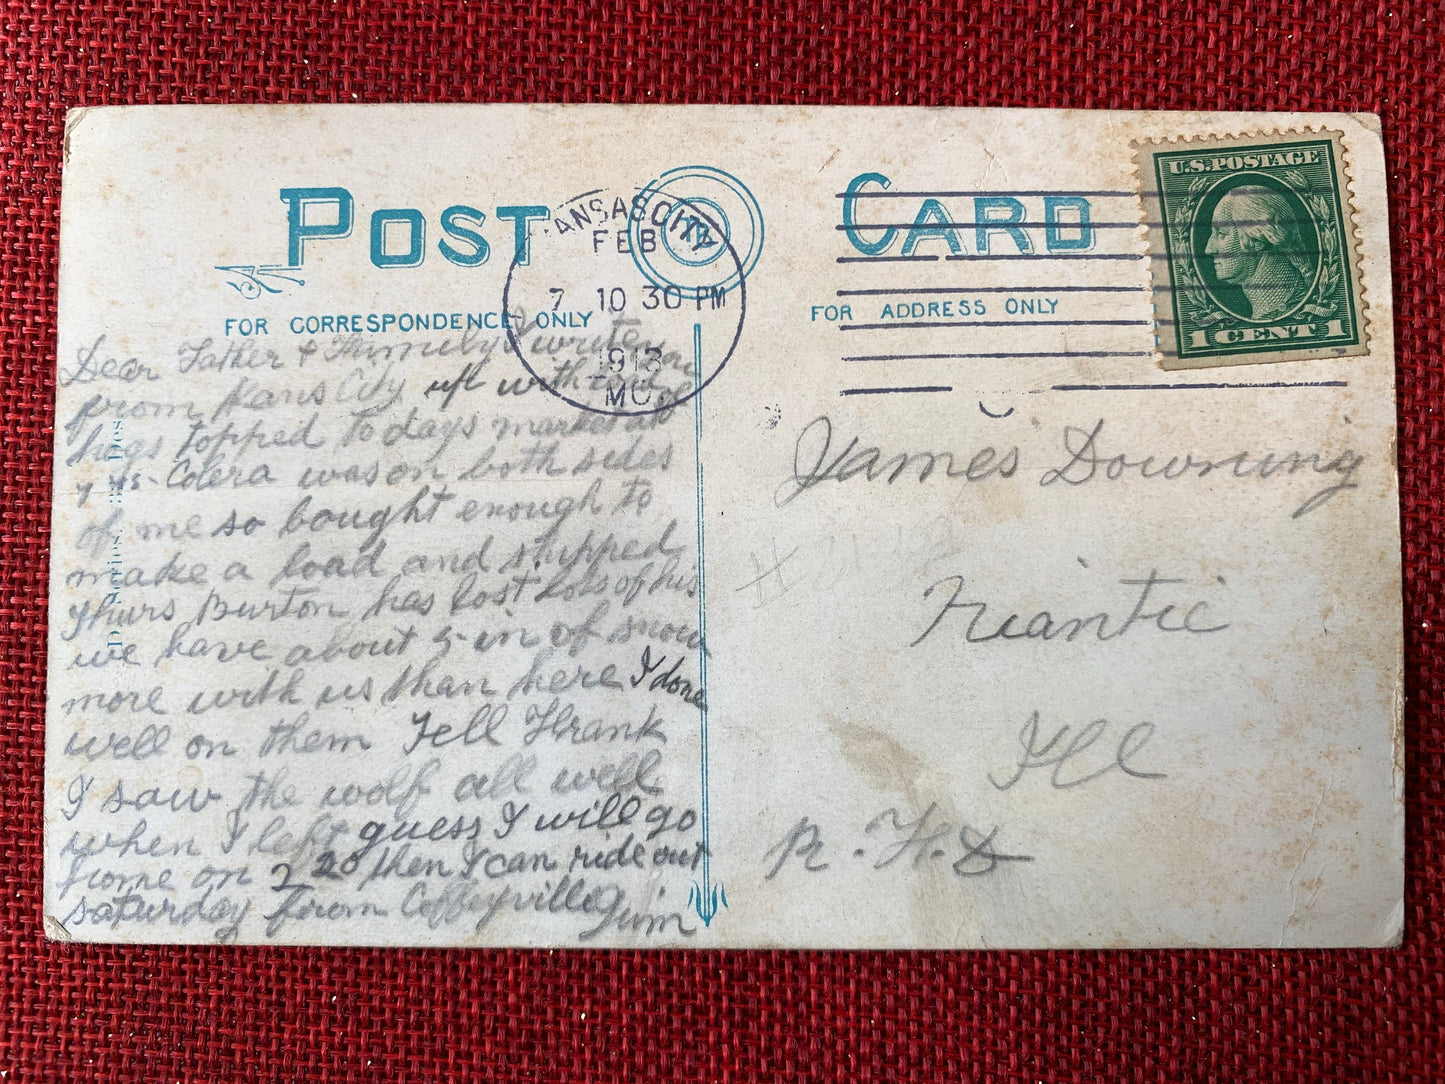 POST CARD
FOR CORRESPONDENCE ONLY
FOR ADDRESS ONLY
KANSAS CITY
FEB
7 10 30 PM
1913
MO.
U.S. POSTAGE
1 CENT 1
Dear Father & Fhimily I writen
from Kans City up with load of
hogs topped to days market at
Colera was on both sides
of me so bought enough to
make a load and shipped
Thurs Burton has lost lots of his
we have about 5 in of snow
more with us than here I done
well on them Tell Fhrank
I saw the wolf all well
when I left guess I will go
home on 2 20 then I can ride out
saturday from Coffeyville Jim
James Downing
Niantic
Ill
R.F.D